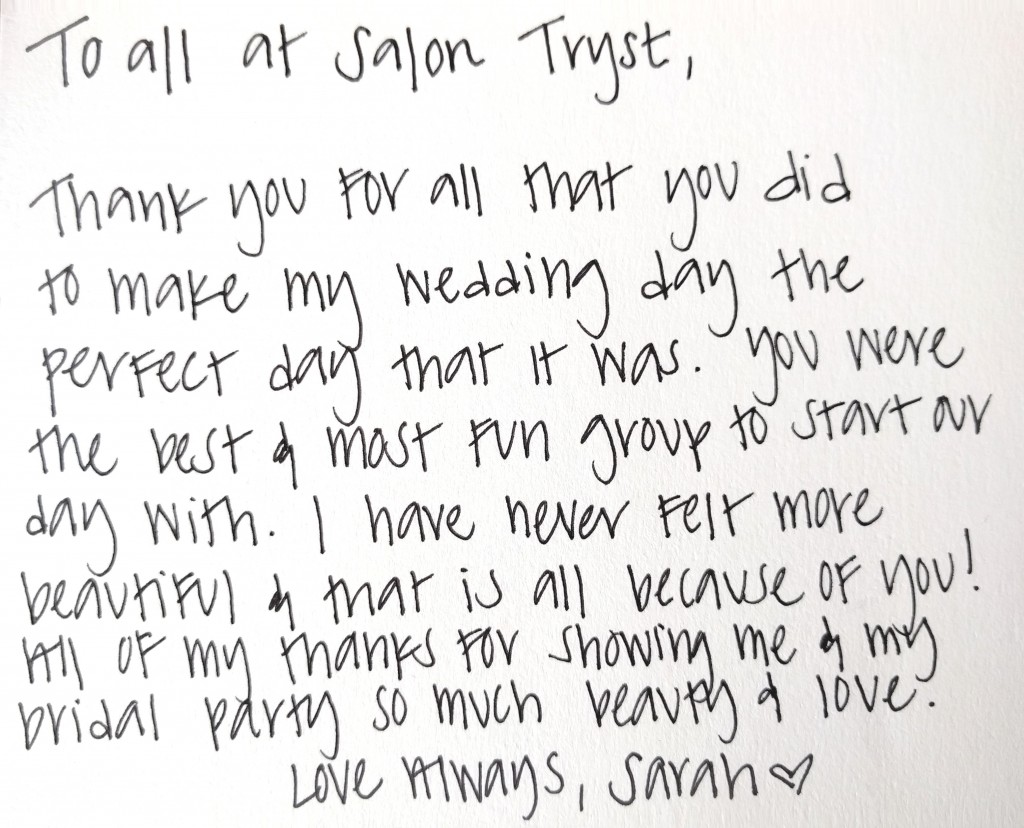 To all at Salon Tryst,
Thank you for all that you did
to make my wedding day the
perfect day that it was. you were
the best & most fun group to start our
day with. I have never felt more
beautiful & that is all because of you!
All of my thanks for showing me & my
bridal party so much beauty & love.
Love Always, Sarah ♡